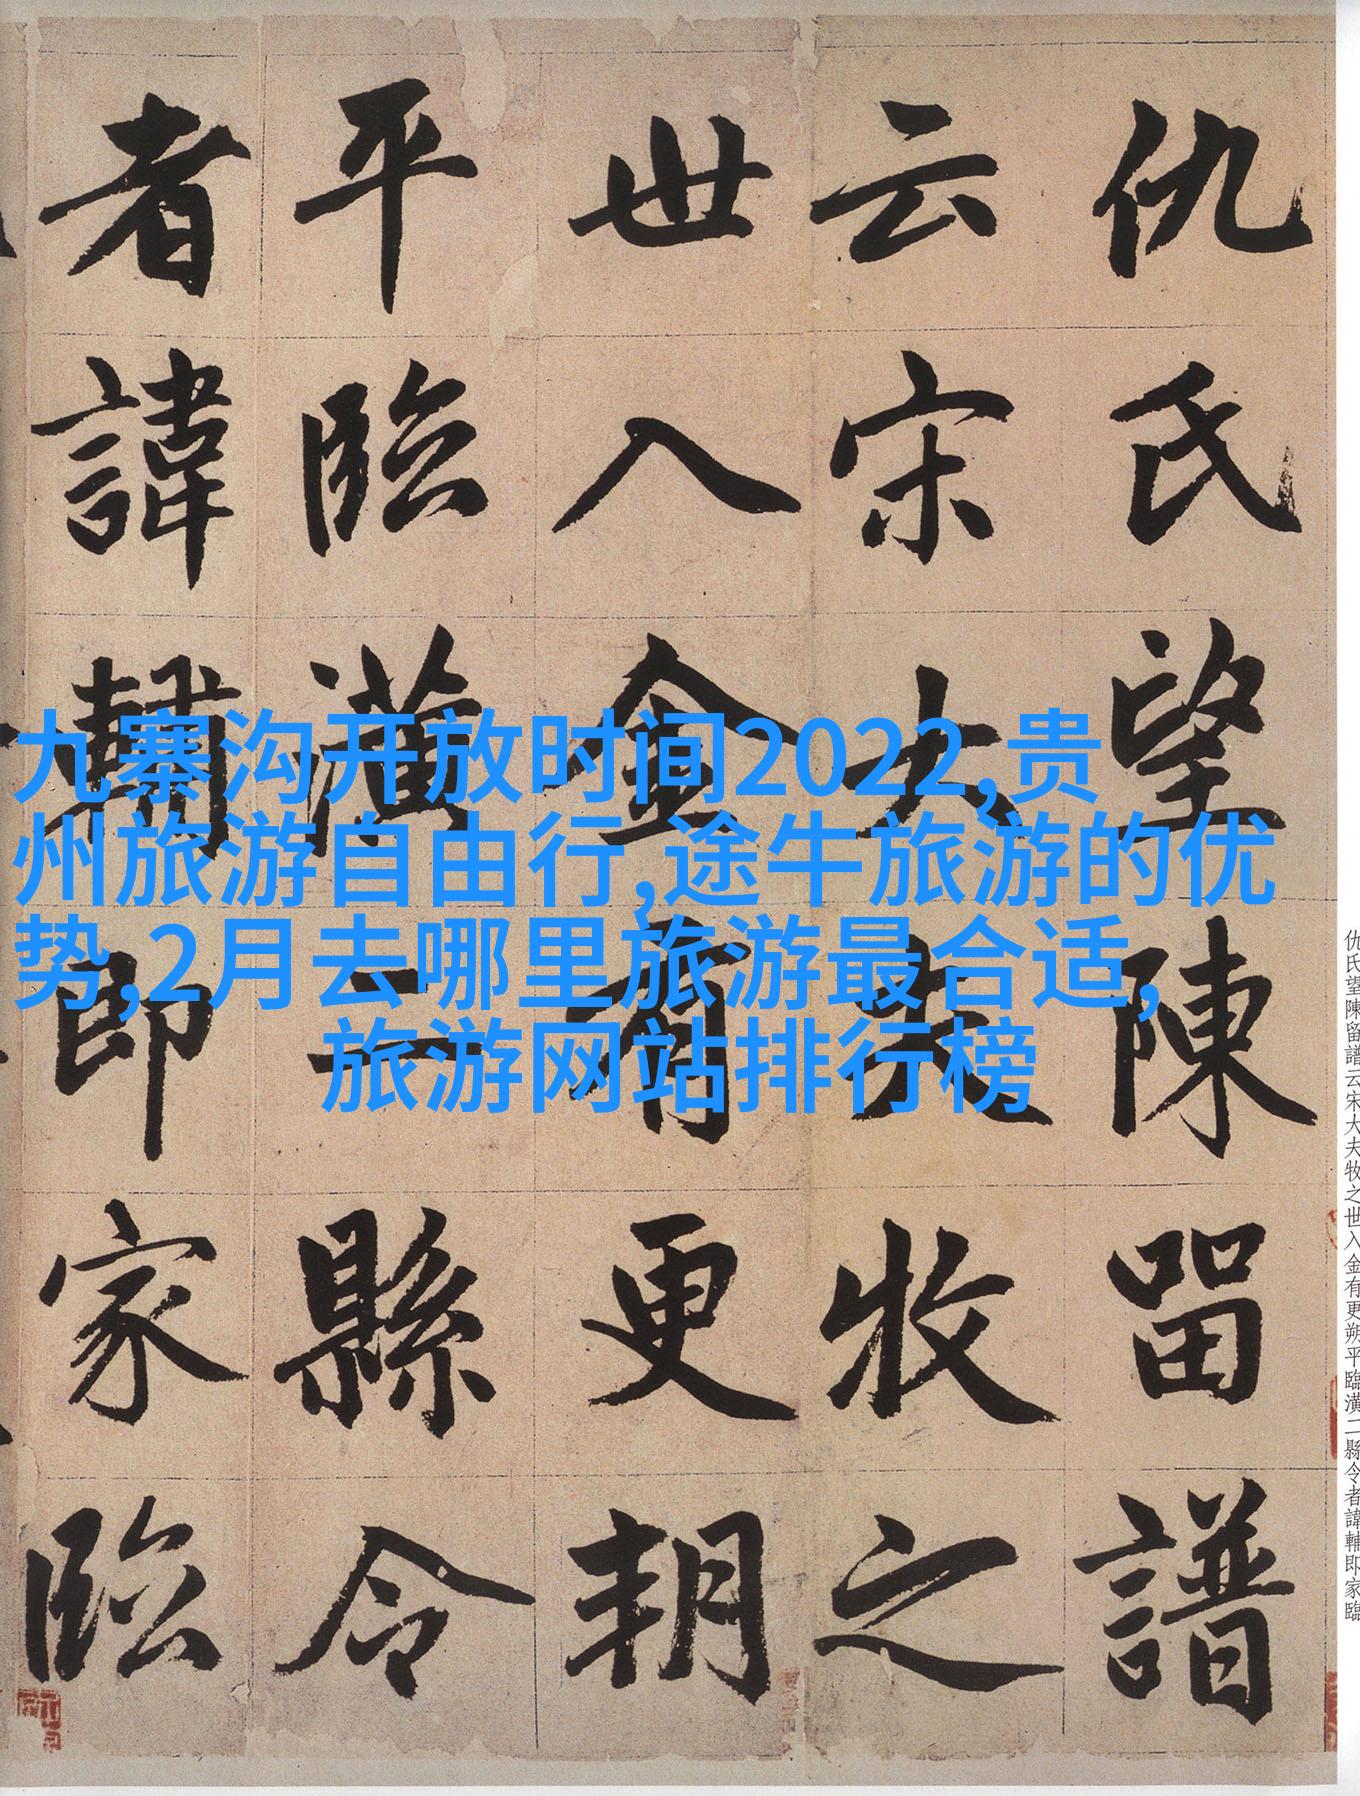 九寨沟开放时间2022,贵
州旅游自由行,途牛旅游的优
势,2月去哪里旅游最合适,
旅游网站排行榜
仇氏望陳留譜
云宋大夫牧之
世入金有更朔
平臨潢二縣令
者諱輔即家臨
仇氏望陳留譜云宋大夫牧之世入金有更朔平臨潢二縣令者諱輔即家臨